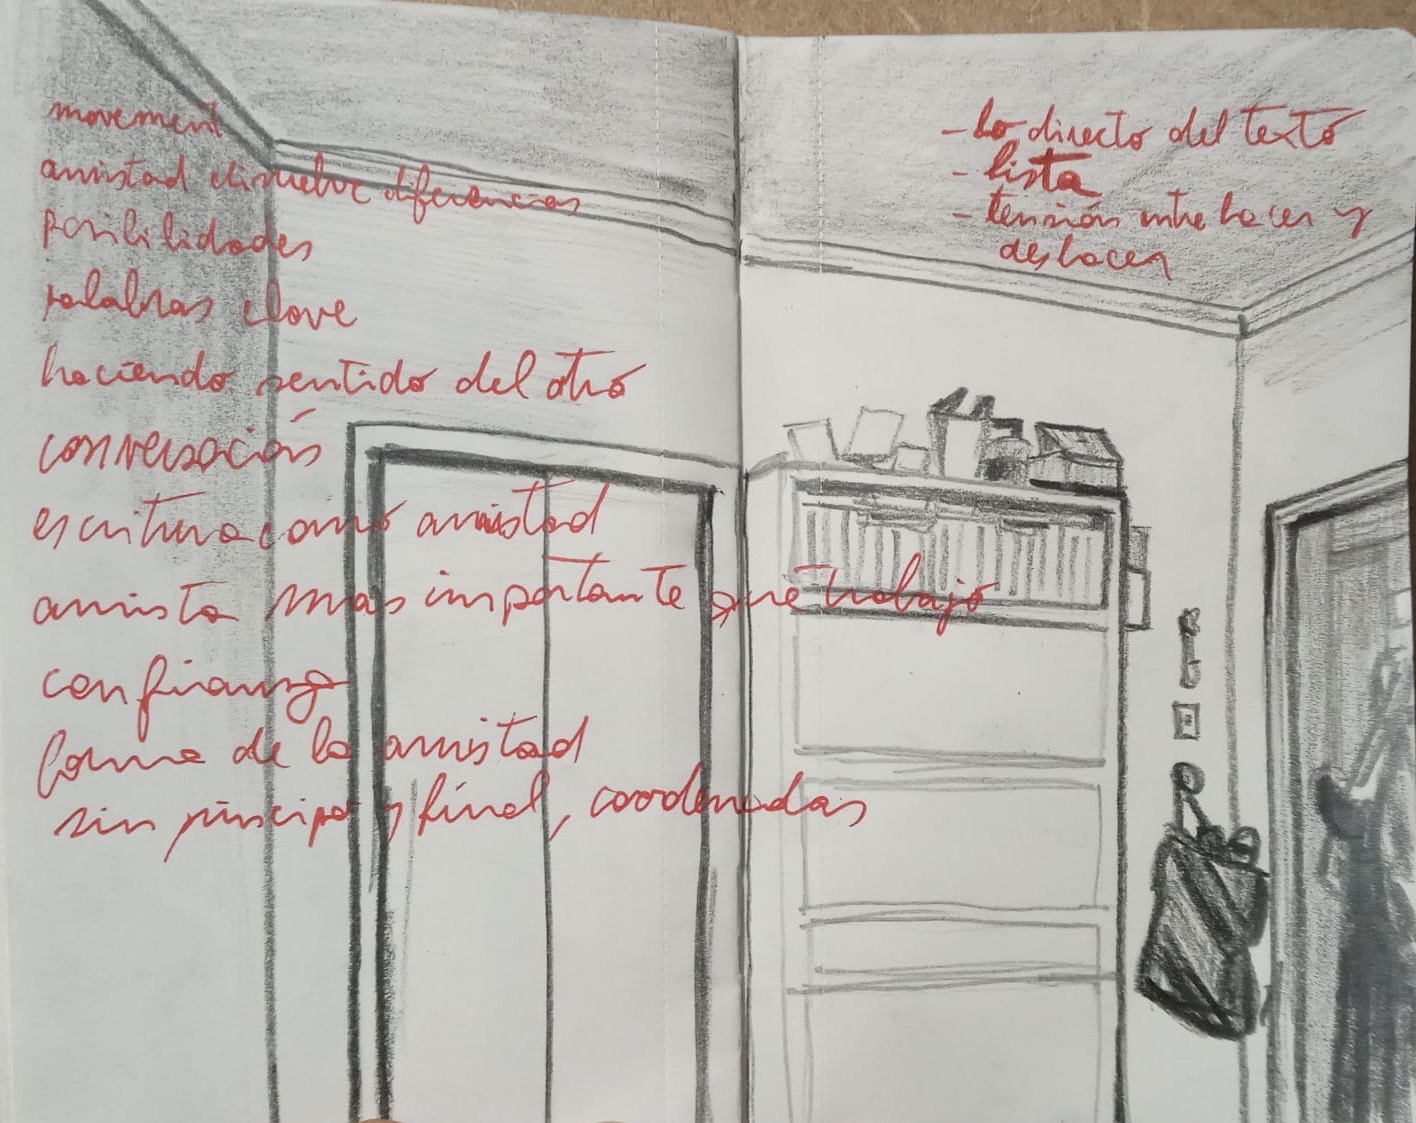 movement
amistad disuelve diferencias
posibilidades
palabras clave
haciendo sentido del otro
conversación
escritura como amistad
amista mas importante que trabajo
confianza
forma de la amistad
sin principo y final, coordenadas
- Lo directo del texto
- lista
- tensión entre hacer y
deshacer